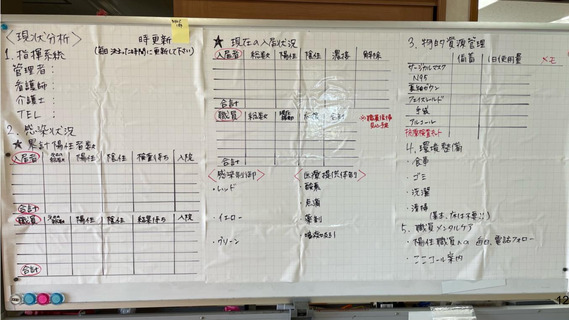 〈現状分析〉 時更新
(毎日決まった時間に更新して下さい)
1. 指揮系統
管理者:
看護師:
介護士:
TEL:
2. 感染状況
★ 累計陽性者数
入居者 陽性 陰性 検査待ち 入院
合計
職員 陽性 陰性 結果待ち 入院
合計
★ 現在の入居状況
入居者 総数 陽性 陰性 濃接 解除
合計
職員 総数 陰性 合計
合計
〈感染制御〉
・レッド
・イエロー
・グリーン
〈医療提供体制〉
・酸素
・点滴
・薬剤
3. 物的資源管理
備蓄 1日使用量 メモ
サージカルマスク
N95
長袖ガウン
フェイスシールド
手袋
アルコール
抗原検査キット
4. 環境整備
・食事
・ゴミ
・洗濯
・清掃
5. 職員メンタルケア
・陽性職員への 毎日、電話フォロー
・こころコール案内